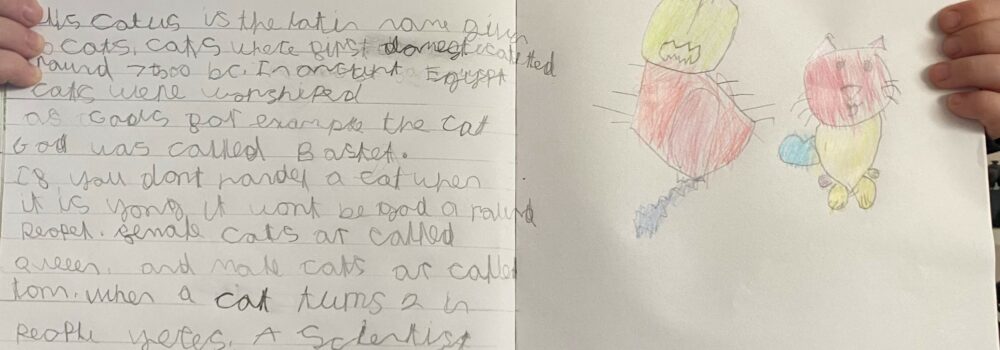 us catus is the latin name givn
o cats. cats where first domesticatted
round 7500 bc. In anctynt Egypt
cats were worshiped
as Gods for example the cat
God was called Basket.
If you dont handel a cat when
it is yong it wont be god a round
peopel. female cats ar called
queen. and male cats ar called
tom. when a cat turns 2 in
people yeres. A Scientist